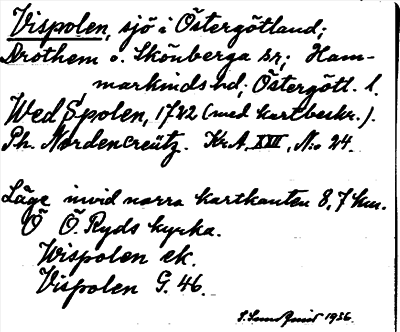 Vispolen, sjö i Östergötland;
Drothem o. Skönberga sr; Ham-
markinds hd; Östergötl. l.
Wed Spolen, 1722 (med kartbeskr.).
Ph. Nordencreütz. Kr.A. XVI, N:o 24.
Läge invid norra kartkanten 8,7 km.
Ö Ö. Ryds kyrka.
Wispolen ek.
Vispolen G. 46.
1936.